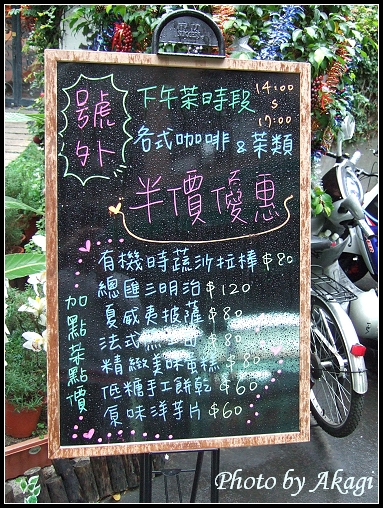 號外
下午茶時段 14:00
S
17:00
各式咖啡 & 茶類
半價優惠
加點茶點價
有機時蔬沙拉棒 $80
總匯三明治 $120
夏威夷披薩 $80
法式 $80
精緻美味蛋糕 $80
低糖手工餅乾 $60
原味洋芋片 $60
Photo by Akagi